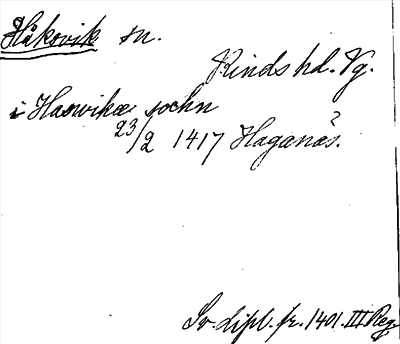 Håksvik sn.
Kinds hd. Vg.
i Haswika sochn
23/2 1417 Haganäs.
?
Sv. dipl. fr. 1401. III Reg.